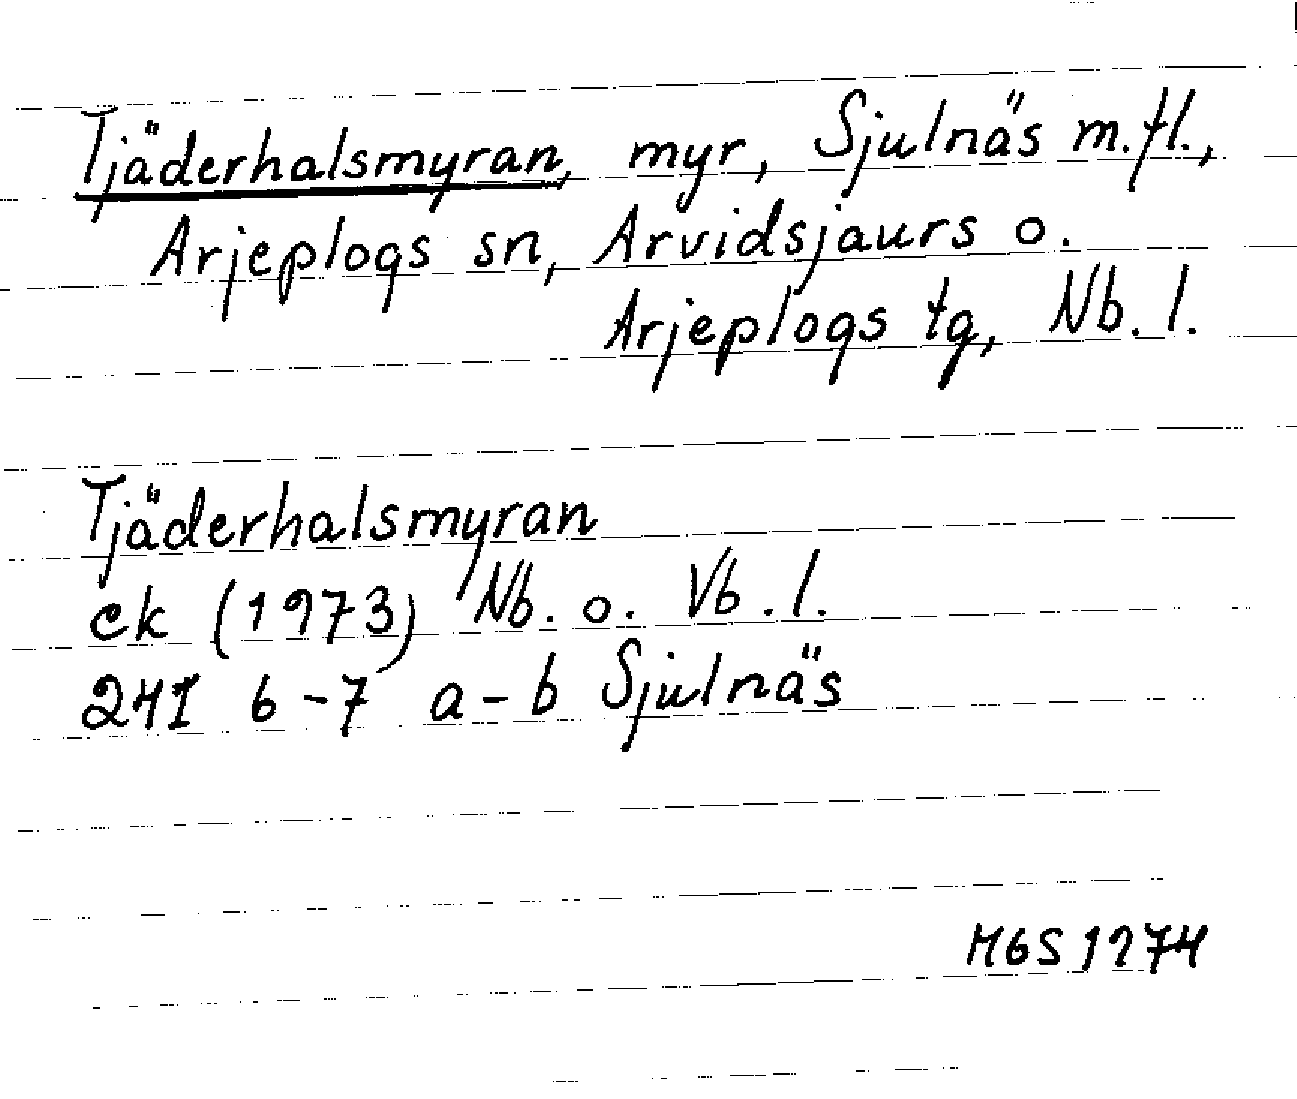 Tjäderhalsmyran, myr, Sjulnäs m.fl.,
Arjeplogs sn, Arvidsjaurs o.
Arjeplogs tg, Nb. l.
Tjäderhalsmyran
ek (1973) Nb. o. Vb. l.
24I 6-7 a-b Sjulnäs
MGS 1974